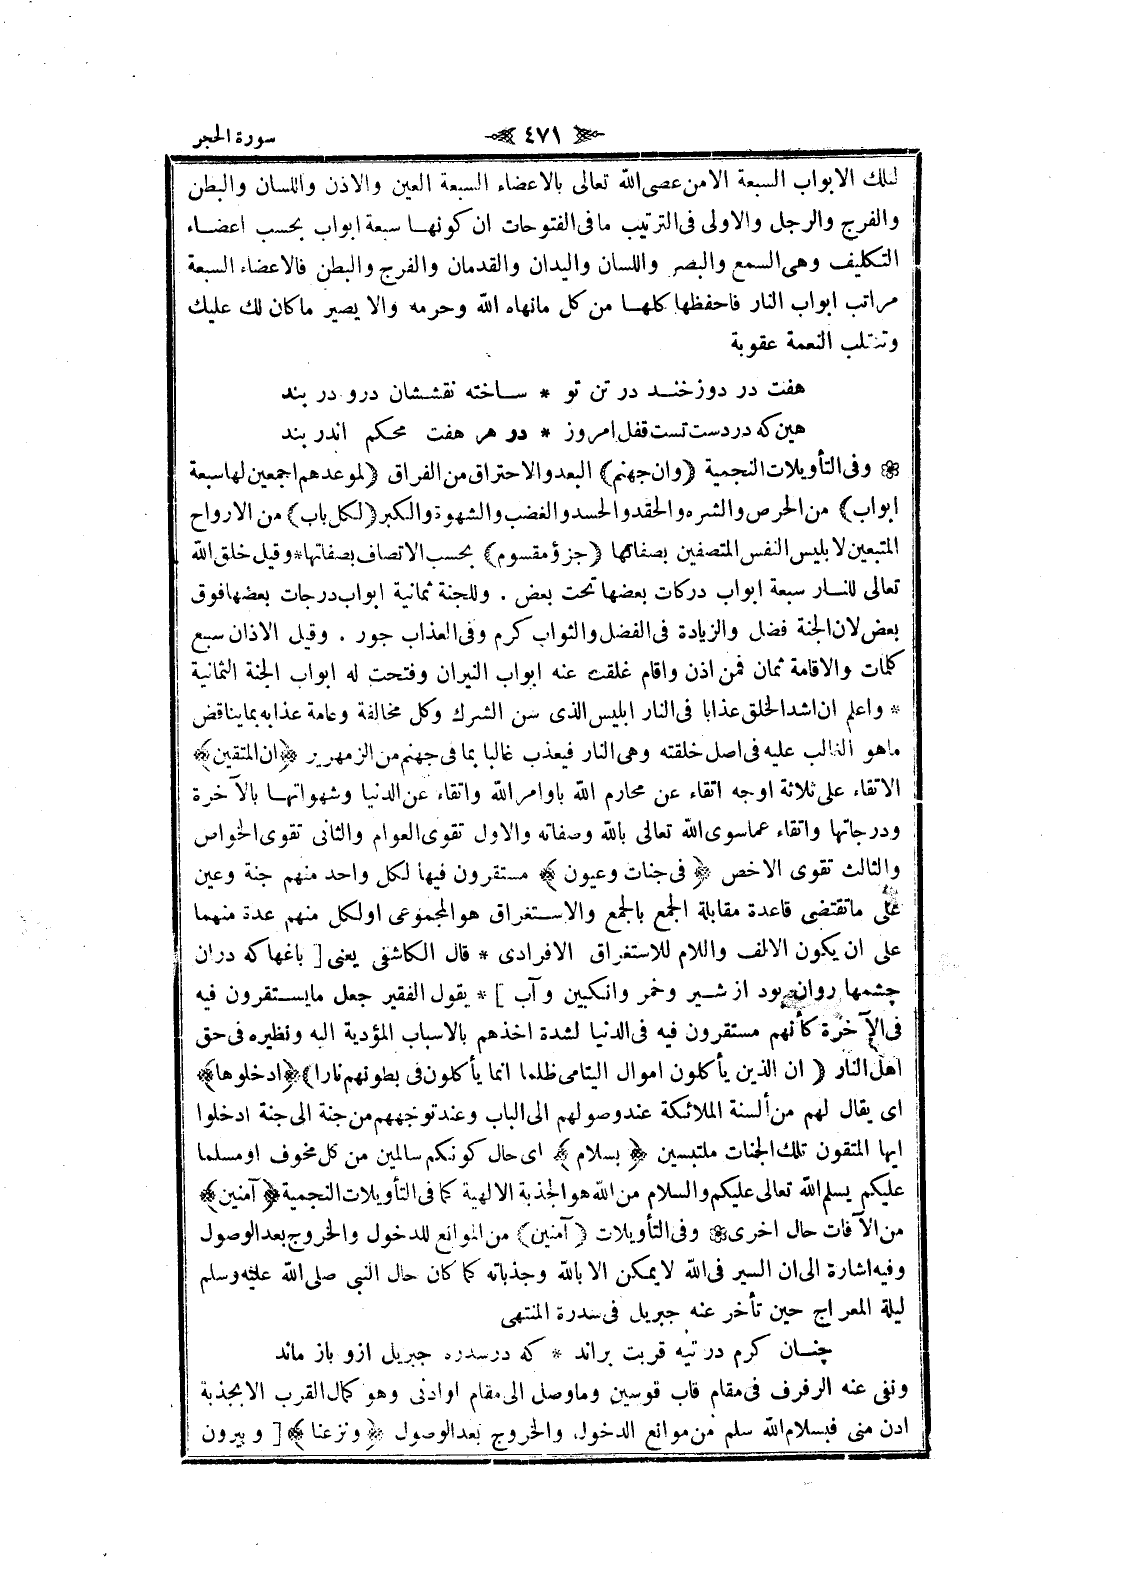 سورة الحجر
﴿ ٤٧١ ﴾
لتلك الابواب السبعة الا من عصى الله تعالى بالاعضاء السبعة العين والاذن واللسان والبطن
والفرج والرجل والاولى فى الترتيب ما فى الفتوحات ان كونها سبعة ابواب بحسب اعضاء
التكليف وهى السمع والبصر واللسان واليدان والقدمان والفرج والبطن فالاعضاء السبعة
مراتب ابواب النار فاحفظها كلها من كل مانهاه الله وحرمه والا يصير ماكان لك عليك
وتنقلب النعمة عقوبة
هفت در دوزخند در تن تو * ساخته نقششان درو در بند
هين كه در دست تست قفل امروز * در هر هفت محكم اندر بند
❀ وفى التأويلات النجمية (وان جهنم) البعد والاحتراق من الفراق (لموعدهم اجمعين لها سبعة
ابواب) من الحرص والشره والحقد والحسد والغضب والشهوة والكبر (لكل باب) من الارواح
المتبعين لابليس النفس المتصفين بصفاتها (جزؤ مقسوم) بحسب الاتصاف بصفاتها * وقيل خلق الله
تعالى للنار سبعة ابواب دركات بعضها تحت بعض . وللجنة ثمانية ابواب درجات بعضها فوق
بعض لان الجنة فضل والزيادة فى الفضل والثواب كرم وفى العذاب جور . وقيل الاذان سبع
كلمات والاقامة ثمان فمن اذن واقام غلقت عنه ابواب النيران وفتحت له ابواب الجنة الثمانية
* واعلم ان اشد الخلق عذابا فى النار ابليس الذى سن الشرك وكل مخالفة وعامة عذابه بما يناقض
ماهو الغالب عليه فى اصل خلقته وهى النار فيعذب غالبا بما فى جهنم من الزمهرير ﴿ ان المتقين ﴾
الاتقاء على ثلاثة اوجه اتقاء عن محارم الله باوامر الله واتقاء عن الدنيا وشهواتها بالآخرة
ودرجاتها واتقاء عما سوى الله تعالى بالله وصفاته والاول تقوى العوام والثانى تقوى الخواص
والثالث تقوى الاخص ﴿ فى جنات وعيون ﴾ مستقرون فيها لكل واحد منهم جنة وعين
على ماتقتضى قاعدة مقابلة الجمع بالجمع والاستغراق هو المجموعى اولكل منهم عدة منهما
على ان يكون الالف واللام للاستغراق الافرادى * قال الكاشفى يعنى [ باغها كه دران
چشمها روان بود از شير وخمر وانكبين و آب ] * يقول الفقير جعل مايستقرون فيه
فى الآخرة كأنهم مستقرون فيه فى الدنيا لشدة اخذهم بالاسباب المؤدية اليه ونظيره فى حق
اهل النار ( ان الذين يأكلون اموال اليتامى ظلما انما يأكلون فى بطونهم نارا ) ﴿ ادخلوها ﴾
اى يقال لهم من ألسنة الملائكة عند وصولهم الى الباب وعند توجههم من جنة الى جنة ادخلوا
ايها المتقون تلك الجنات ملتبسين ﴿ بسلام ﴾ اى حال كونكم سالمين من كل مخوف او مسلما
عليكم يسلم الله تعالى عليكم والسلام من الله هو الجذبة الالهية كما فى التأويلات النجمية ﴿ آمنين ﴾
من الآفات حال اخرى ❀ وفى التأويلات (آمنين) من الموانع للدخول والخروج بعد الوصول
وفيه اشارة الى ان السير فى الله لايمكن الا بالله وجذباته كما كان حال النبى صلى الله عليه وسلم
ليلة المعراج حين تأخر عنه جبريل فى سدرة المنتهى
چنان كرم در تيه قربت براند * كه در سدره جبريل ازو باز ماند
ونفى عنه الرفرف فى مقام قاب قوسين وماوصل الى مقام اوادنى وهو كمال القرب الا بجذبة
ادن منى فبسلام الله سلم من موانع الدخول والخروج بعد الوصول ﴿ ونزعنا ﴾ [ و بيرون